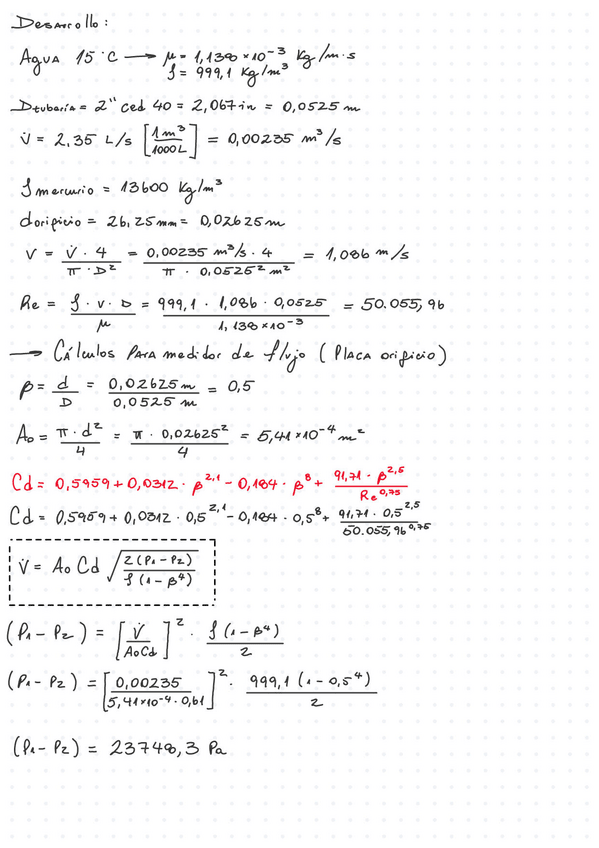 Desarrollo:
Agua 15°C → μ = 1,138×10⁻³ Kg/m·s
ρ = 999,1 Kg/m³
Dtubería = 2" ced 40 = 2,067 in = 0,0525 m
V̇ = 2,35 L/s [1 m³/1000L] = 0,00235 m³/s
ρ mercurio = 13600 Kg/m³
dorificio = 26,25 mm = 0,02625 m
v = V̇ · 4 / π · D² = 0,00235 m³/s · 4 / π · 0,0525² m² = 1,086 m/s
Re = ρ · v · D / μ = 999,1 · 1,086 · 0,0525 / 1,138×10⁻³ = 50.055,96
→ Cálculos para medidor de flujo (Placa orificio)
β = d / D = 0,02625 m / 0,0525 m = 0,5
Ao = π · d² / 4 = π · 0,02625² / 4 = 5,41×10⁻⁴ m²
Cd = 0,5959 + 0,0312 · β^2,1 − 0,184 · β⁸ + 91,71 · β^2,5 / Re^0,75
Cd = 0,5959 + 0,0312 · 0,5^2,1 − 0,184 · 0,5⁸ + 91,71 · 0,5^2,5 / 50.055,96^0,75
V̇ = Ao Cd √(2(P₁ − P₂) / ρ(1 − β⁴))
(P₁ − P₂) = [V̇ / AoCd]² · ρ(1 − β⁴) / 2
(P₁ − P₂) = [0,00235 / 5,41×10⁻⁴ · 0,61]² · 999,1 (1 − 0,5⁴) / 2
(P₁ − P₂) = 23748,3 Pa